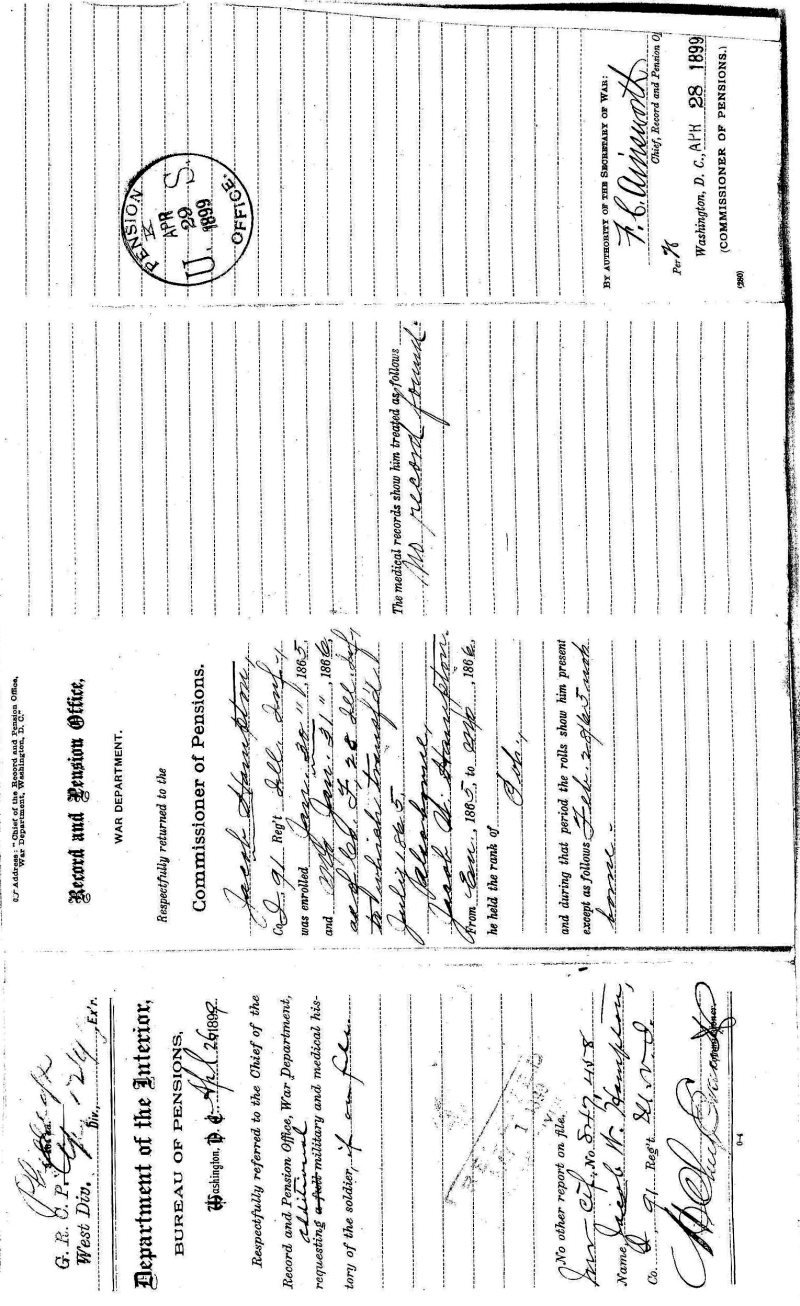 G. R. C. P.
West Div. Div., Ex'r.
Department of the Interior,
BUREAU OF PENSIONS,
Washington, D. C. Apl 26 1899
Respectfully referred to the Chief of the
Record and Pension Office, War Department,
requesting a full military and medical his-
additional
tory of the soldier,
No other report on file.
Inv. Ctf. No. 847,458
Name, Jacob W. Hampton,
Co. D 91 Reg't.
0-4
"Chief of the Record and Pension Office,
War Department, Washington, D. C."
Record and Pension Office,
WAR DEPARTMENT.
Respectfully returned to the
Commissioner of Pensions.
Jacob Hampton,
Co. D 91 Reg't Ill. Inf.,
was enrolled Jan. 20", 1865,
and M.O. Jan. 31", 1866,
as of Co. F, 28 Ill. Inf.,
to which transf'd
July 1865,
Also borne,
Jacob W. Hampton.
From En., 1865, to M.O., 1866,
he held the rank of
Pvt.,
and during that period the rolls show him present
except as follows Feb. 28/65 not
borne.
The medical records show him treated as follows
No record found.
PENSION
APR
29
U. S.
1899
OFFICE.
BY AUTHORITY OF THE SECRETARY OF WAR:
F. C. Ainsworth
Chief, Record and Pension O
Per
Washington, D. C., APR 28 1899
(COMMISSIONER OF PENSIONS.)
(280)